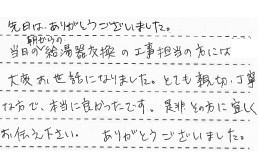 先日は、ありがとうございました。
朝からの
当日の給湯器交換の工事担当の方には
大変お世話になりました。とても親切、丁寧
な方で、本当に良かったです。是非その方に宜しく
お伝え下さい。　ありがとうございました。